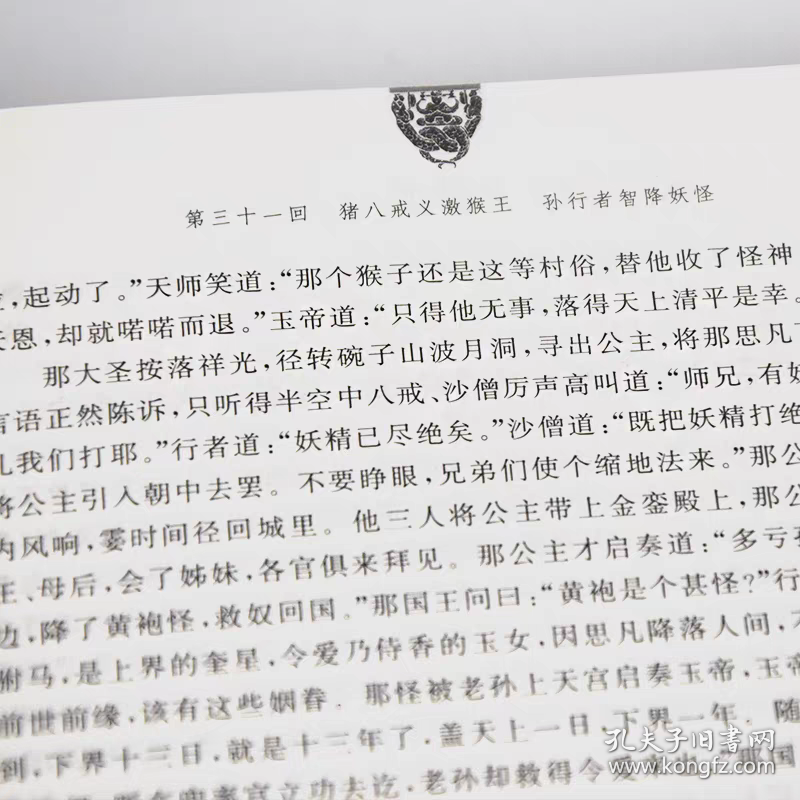 第三十一回 猪八戒义激猴王 孙行者智降妖怪
,起动了。”天师笑道:“那个猴子还是这等村俗,替他收了怪神
恩,却就喏喏而退。”玉帝道:“只得他无事,落得天上清平是幸。
那大圣按落祥光,径转碗子山波月洞,寻出公主,将那思凡
言语正然陈诉,只听得半空中八戒、沙僧厉声高叫道:“师兄,有
我们打耶。”行者道:“妖精已尽绝矣。”沙僧道:“既把妖精打绝
将公主引入朝中去罢。不要睁眼,兄弟们使个缩地法来。”那公
内风响,霎时间径回城里。他三人将公主带上金銮殿上,那公
王、母后,会了姊妹,各官俱来拜见。那公主才启奏道:“多亏孙
边,降了黄袍怪,救奴回国。”那国王问曰:“黄袍是个甚怪?”行
驸马,是上界的奎星,令爱乃侍香的玉女,因思凡降落人间,不
前世前缘,该有这些姻眷。那怪被老孙上天宫启奏玉帝,玉帝
到,下界十三日,就是十三年了,盖天上一日,下界一年。随
宫立功去讫,老孙却救得令爱
国
孔夫子旧书网
www.kongfz.com